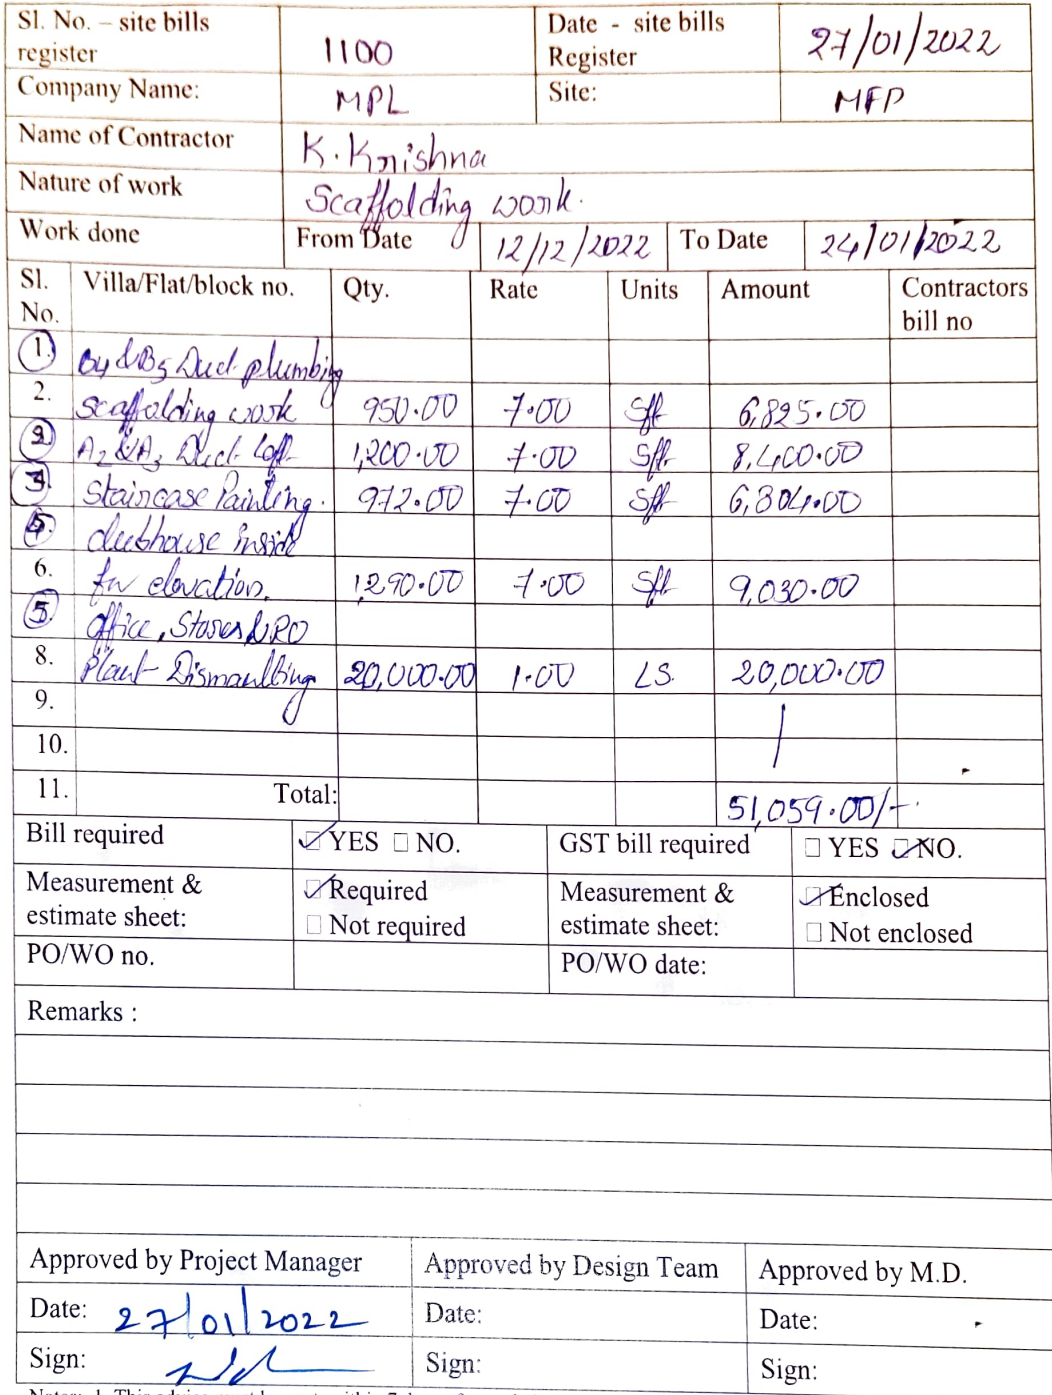 Sl. No. – site bills register 1100 Date - site bills Register 27/01/2022
Company Name: MPL Site: MFP
Name of Contractor K. Krishna
Nature of work Scaffolding work.
Work done From Date 12/12/2022 To Date 24/01/2022
Sl. No. Villa/Flat/block no. Qty. Rate Units Amount Contractors bill no
1. B4 & B5 Duct plumbing
2. Scaffolding work 950.00 7.00 Sft 6,825.00
2 A2 & A3 Duct Loft 1,200.00 7.00 Sft 8,400.00
3 Staircase Painting. 972.00 7.00 Sft 6,804.00
4 clubhouse inside
6. for elevation. 1,290.00 7.00 Sft 9,030.00
5 office, Stores & RO
8. Plant Dismaulting 20,000.00 1.00 LS. 20,000.00
9.
10.
11. Total: 51,059.00/-
Bill required YES NO. GST bill required YES NO.
Measurement & estimate sheet: Required Not required Measurement & estimate sheet: Enclosed Not enclosed
PO/WO no. PO/WO date:
Remarks :
Approved by Project Manager Approved by Design Team Approved by M.D.
Date: 27/01/2022 Date: Date:
Sign: Sign: Sign: